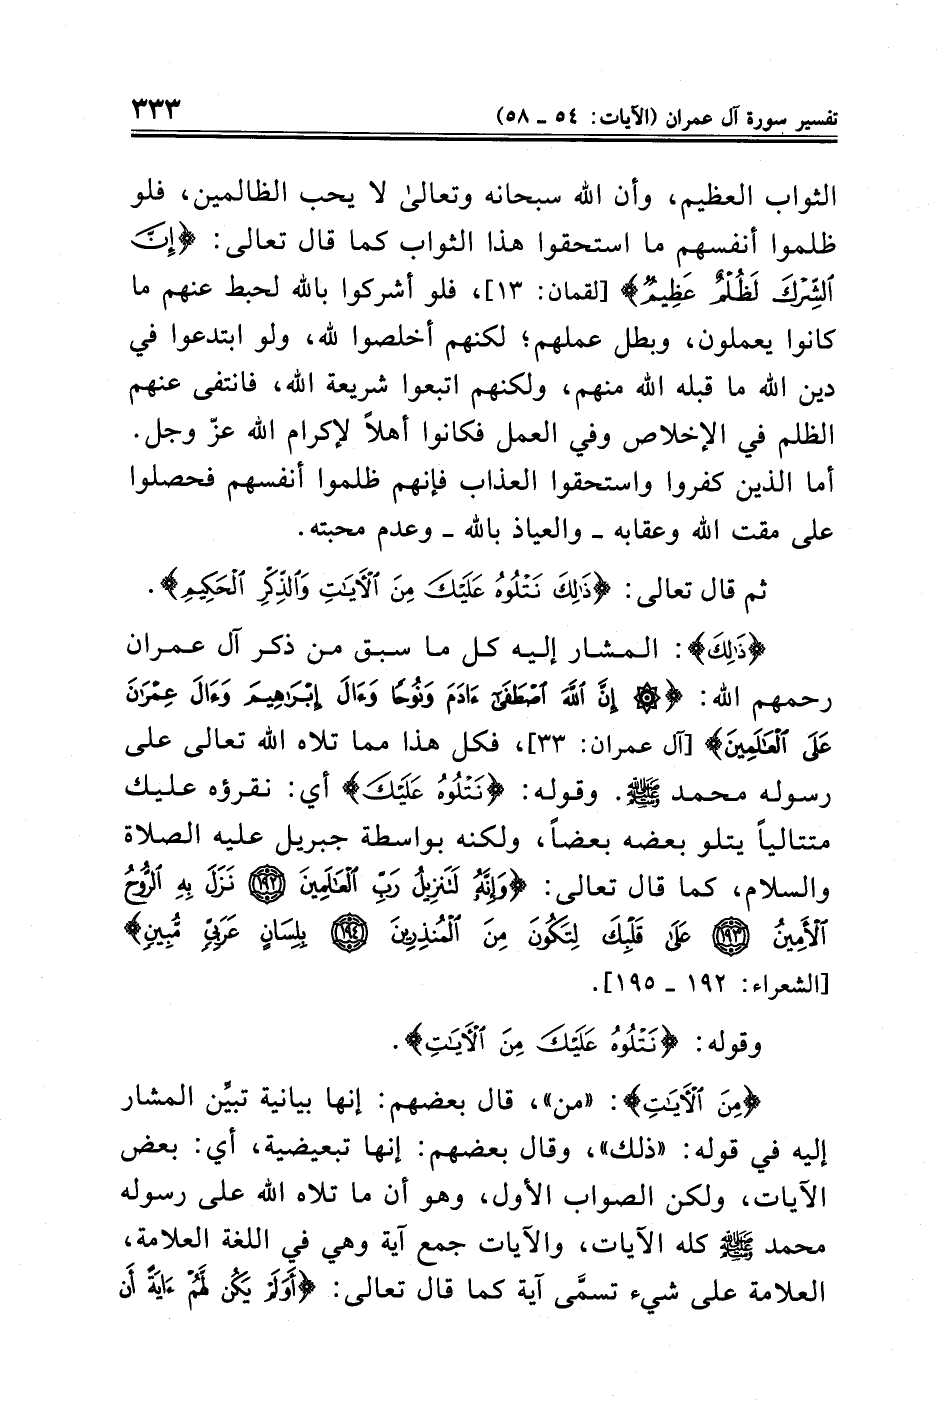 تفسير سورة آل عمران (الآيات: ٥٤ ـ ٥٨) ٣٣٣
الثواب العظيم، وأن الله سبحانه وتعالىٰ لا يحب الظالمين، فلو
ظلموا أنفسهم ما استحقوا هذا الثواب كما قال تعالى: ﴿إِنَّ
ٱلشِّرْكَ لَظُلْمٌ عَظِيمٌ﴾ [لقمان: ١٣]، فلو أشركوا بالله لحبط عنهم ما
كانوا يعملون، وبطل عملهم؛ لكنهم أخلصوا لله، ولو ابتدعوا في
دين الله ما قبله الله منهم، ولكنهم اتبعوا شريعة الله، فانتفى عنهم
الظلم في الإخلاص وفي العمل فكانوا أهلاً لإكرام الله عزّ وجل.
أما الذين كفروا واستحقوا العذاب فإنهم ظلموا أنفسهم فحصلوا
على مقت الله وعقابه ـ والعياذ بالله ـ وعدم محبته.
ثم قال تعالى: ﴿ذَٰلِكَ نَتْلُوهُ عَلَيْكَ مِنَ ٱلْآيَٰتِ وَٱلذِّكْرِ ٱلْحَكِيمِ﴾.
﴿ذَٰلِكَ﴾: المشار إليه كل ما سبق من ذكر آل عمران
رحمهم الله: ﴿۞ إِنَّ ٱللَّهَ ٱصْطَفَىٰٓ ءَادَمَ وَنُوحًا وَءَالَ إِبْرَٰهِيمَ وَءَالَ عِمْرَٰنَ
عَلَى ٱلْعَٰلَمِينَ﴾ [آل عمران: ٣٣]، فكل هذا مما تلاه الله تعالى على
رسوله محمد ﷺ. وقوله: ﴿نَتْلُوهُ عَلَيْكَ﴾ أي: نقرؤه عليك
متتالياً يتلو بعضه بعضاً، ولكنه بواسطة جبريل عليه الصلاة
والسلام، كما قال تعالى: ﴿وَإِنَّهُۥ لَتَنزِيلُ رَبِّ ٱلْعَٰلَمِينَ ١٩٢ نَزَلَ بِهِ ٱلرُّوحُ
ٱلْأَمِينُ ١٩٣ عَلَىٰ قَلْبِكَ لِتَكُونَ مِنَ ٱلْمُنذِرِينَ ١٩٤ بِلِسَانٍ عَرَبِيٍّ مُّبِينٍ﴾
[الشعراء: ١٩٢ ـ ١٩٥].
وقوله: ﴿نَتْلُوهُ عَلَيْكَ مِنَ ٱلْآيَٰتِ﴾.
﴿مِنَ ٱلْآيَٰتِ﴾: «من»، قال بعضهم: إنها بيانية تبيِّن المشار
إليه في قوله: «ذلك»، وقال بعضهم: إنها تبعيضية، أي: بعض
الآيات، ولكن الصواب الأول، وهو أن ما تلاه الله على رسوله
محمد ﷺ كله الآيات، والآيات جمع آية وهي في اللغة العلامة،
العلامة على شيء تسمَّى آية كما قال تعالى: ﴿أَوَلَمْ يَكُن لَّهُمْ ءَايَةً أَن